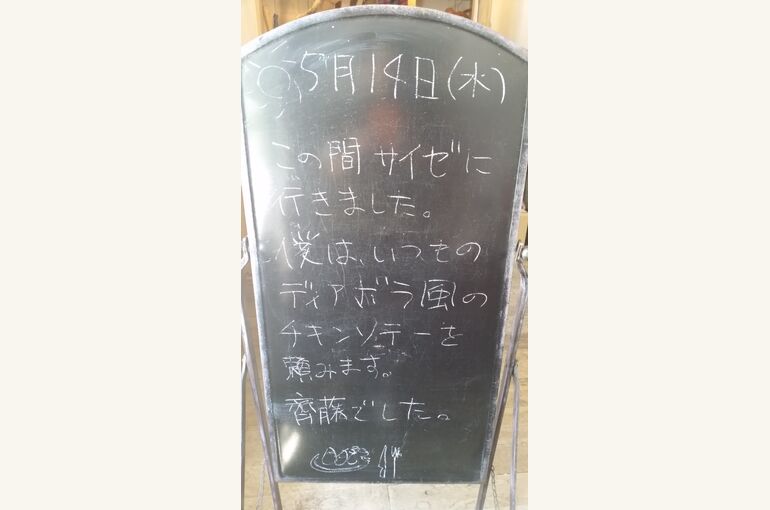 5月14日(水)
この間サイゼに
行きました。
僕は、いつもの
ディアボラ風の
チキンソテーを
頼みます。
齊藤でした。